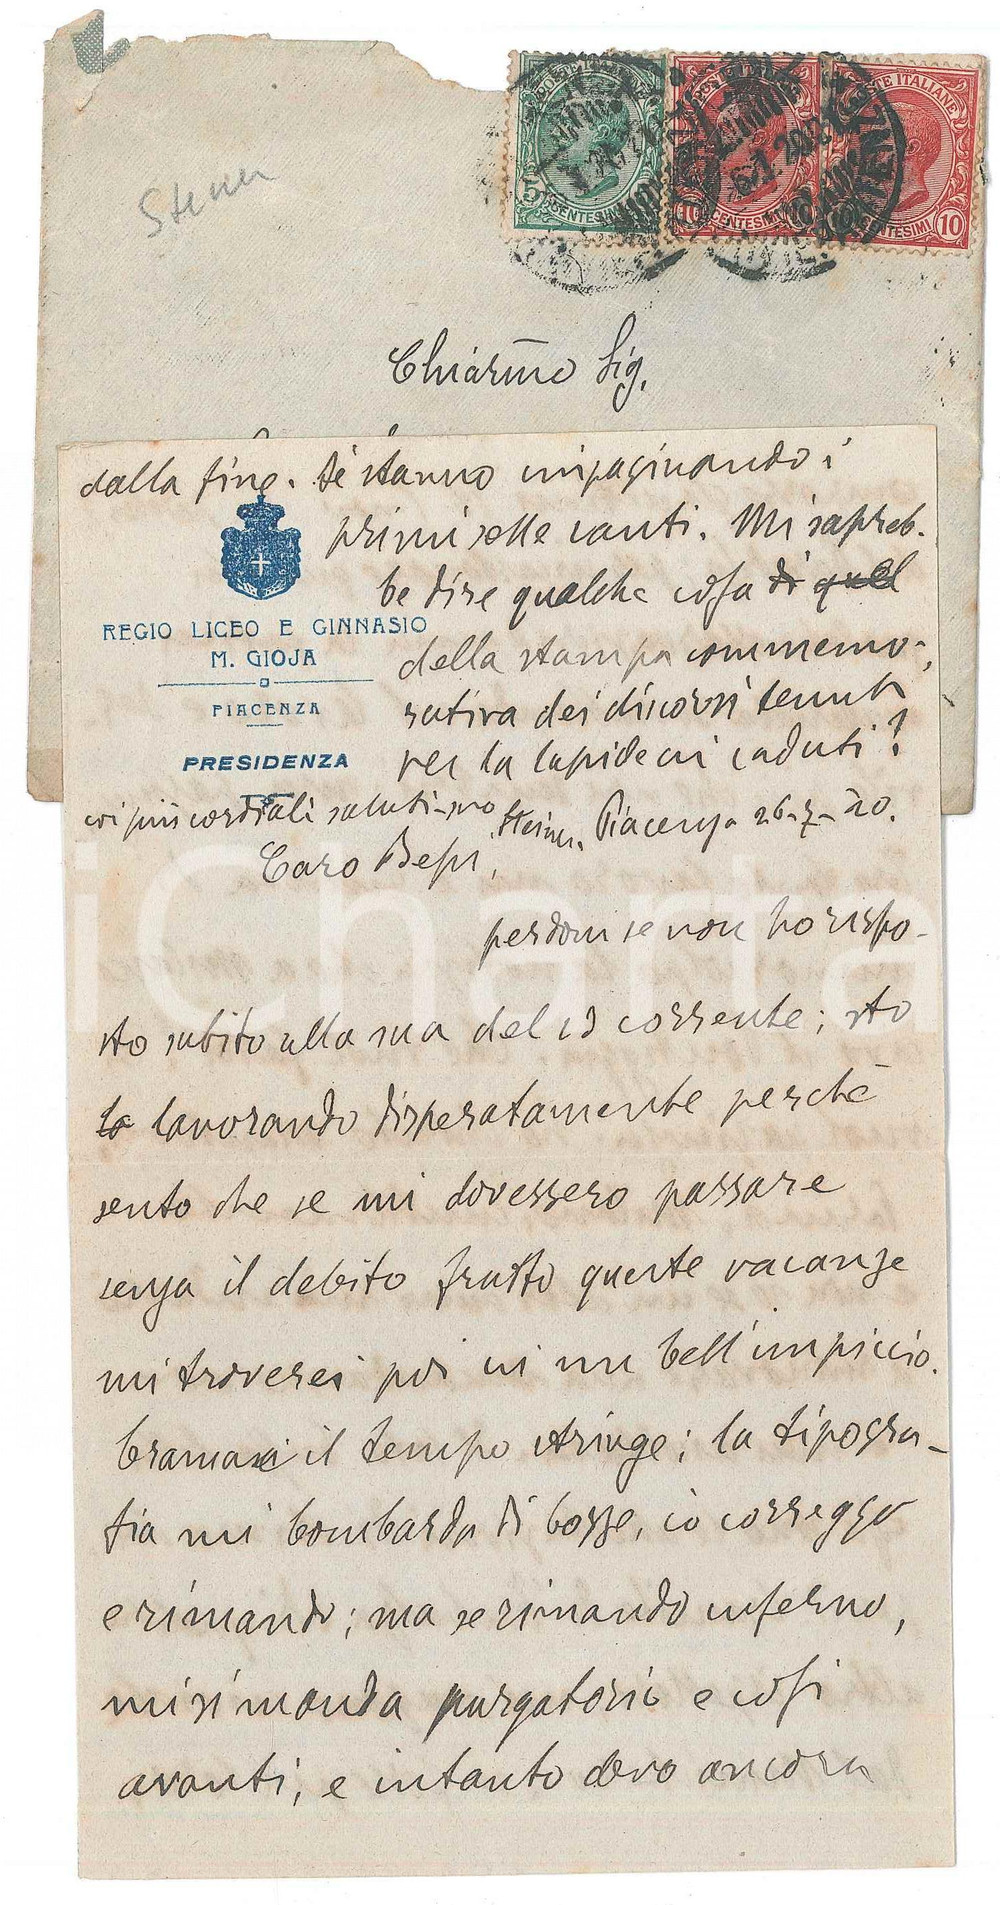 Stener
POSTE ITALIANE
5 CENTESIMI
10 CENTESIMI 10
CENTESIMI 10
Chiar͞mo Sig.
dalla fine. Si stanno impaginando i
primi sette canti. Mi sapreb-
be dire qualche cosa di quel
della stampa commemo-
rativa dei discorsi tenuti
per la lapide ai caduti?
coi più cordiali saluti suo Steiner.
REGIO LICEO E GINNASIO
M. GIOJA
PIACENZA
PRESIDENZA
Piacenza 26-7-20.
Caro Bepi,
perdoni se non ho rispo-
sto subito alla sua del 13 corrente; sto
lo lavorando disperatamente perchè
sento che se mi dovessero passare
senza il debito frutto queste vacanze
mi troverei poi in un bell'impiccio.
Oramai il tempo stringe; la tipogra-
fia mi bombarda di bozze, io correggo
e rimando; ma se rimando inferno,
mi si manda purgatorio e così
avanti, e intanto devo ancora
iCharta